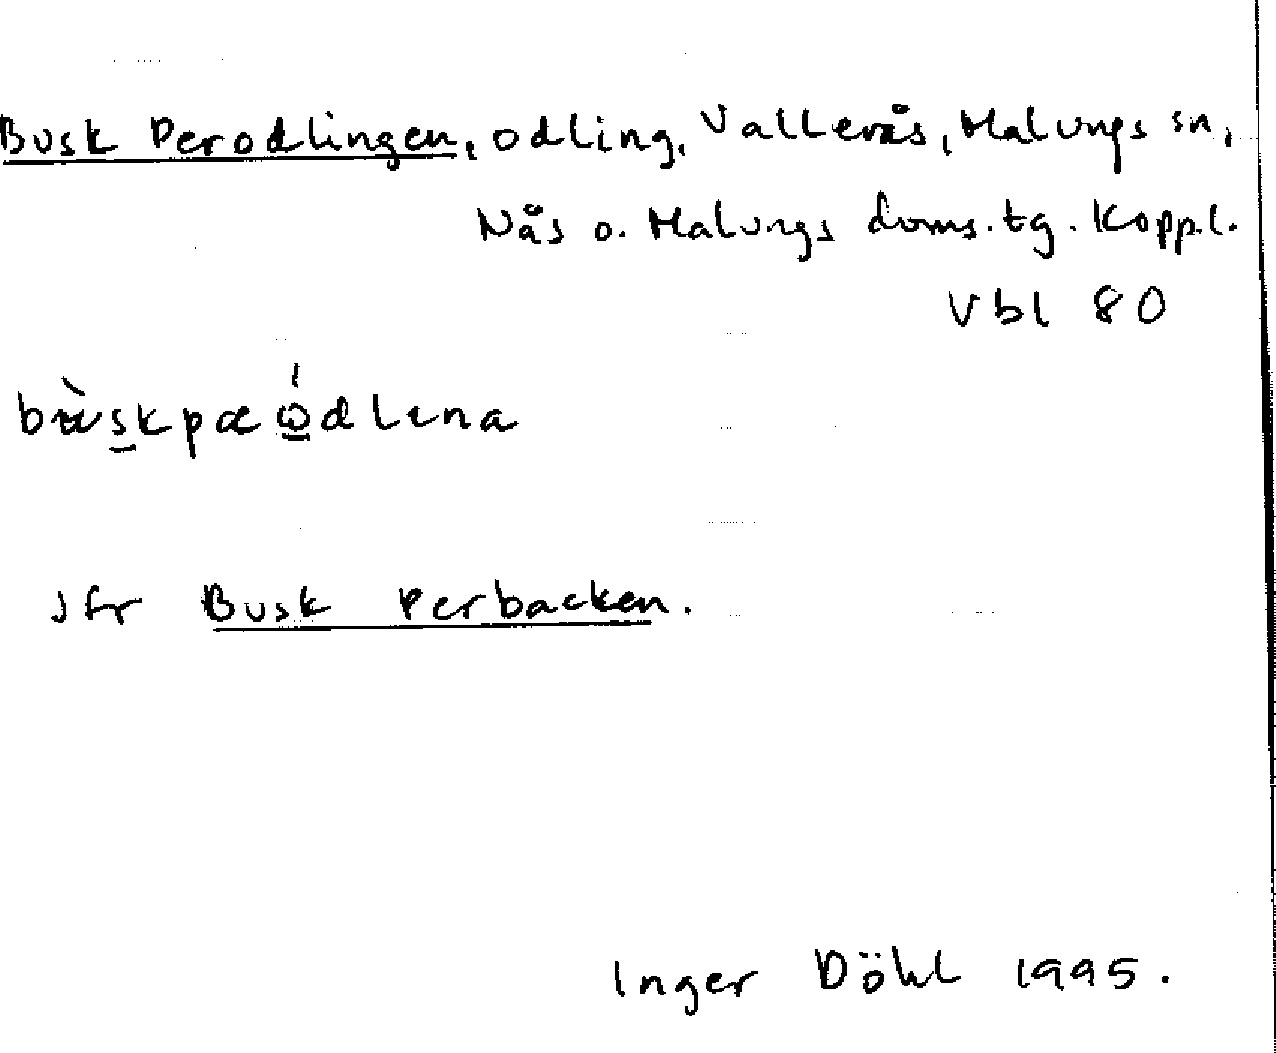 Busk Perodlingen, odling, Vallerås, Malungs sn,
Nås o. Malungs doms. tg. Koppl.
Vbl 80
bùskpæódlɩna
Jfr Busk Perbacken.
Inger Döhl 1995.